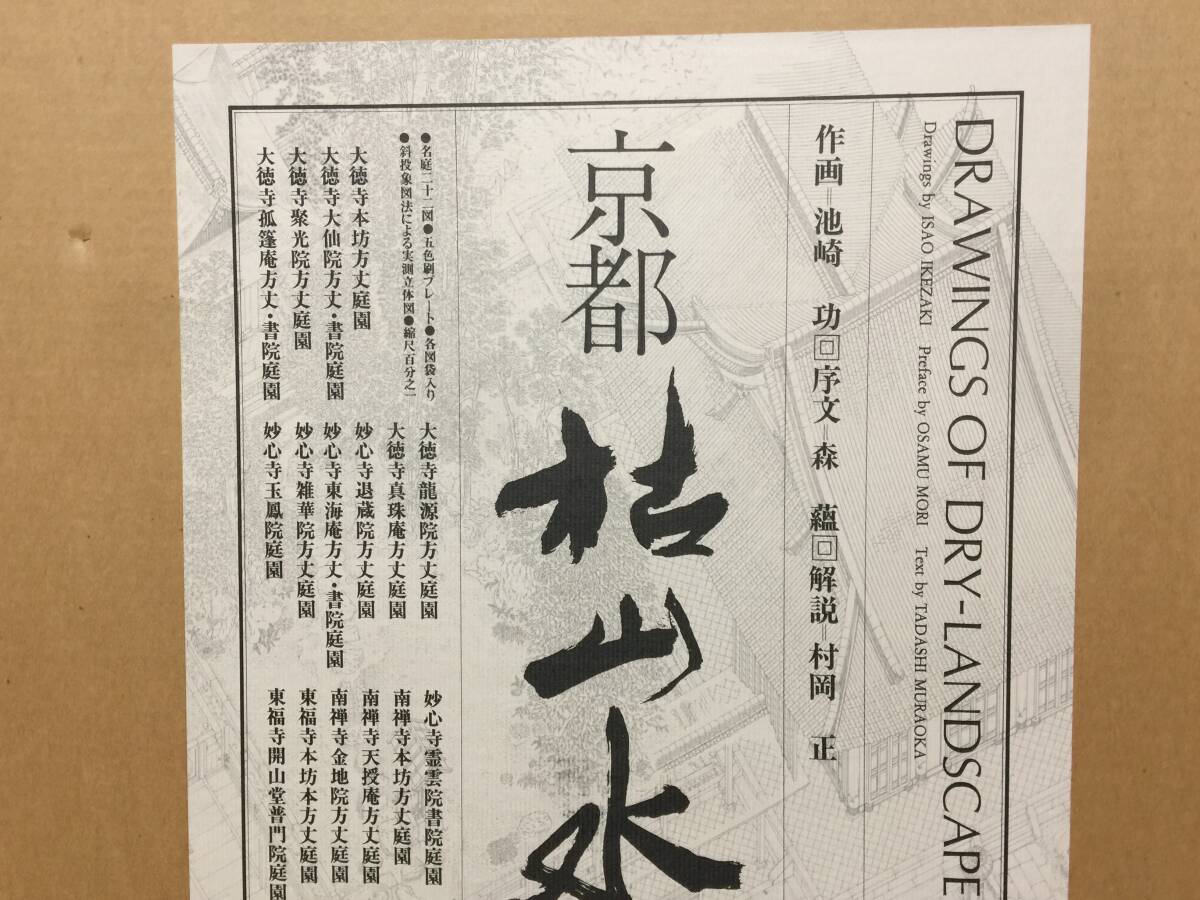 DRAWINGS OF DRY-LANDSCAPE
Drawings by ISAO IKEZAKI Preface by OSAMU MORI Text by TADASHI MURAOKA
作画=池崎 功回序文=森 蘊回解説=村岡 正
京都
枯山水
●名庭二十二図●五色刷プレート●各図袋入り
●斜投象図法による実測立体図●縮尺百分之一
大徳寺本坊方丈庭園
大徳寺大仙院方丈・書院庭園
大徳寺聚光院方丈庭園
大徳寺孤篷庵方丈・書院庭園
大徳寺龍源院方丈庭園
大徳寺真珠庵方丈庭園
妙心寺退蔵院方丈庭園
妙心寺東海庵方丈・書院庭園
妙心寺雑華院方丈庭園
妙心寺玉鳳院庭園
妙心寺霊雲院書院庭園
南禅寺本坊方丈庭園
南禅寺天授庵方丈庭園
南禅寺金地院方丈庭園
東福寺本坊本方丈庭園
東福寺開山堂普門院庭園